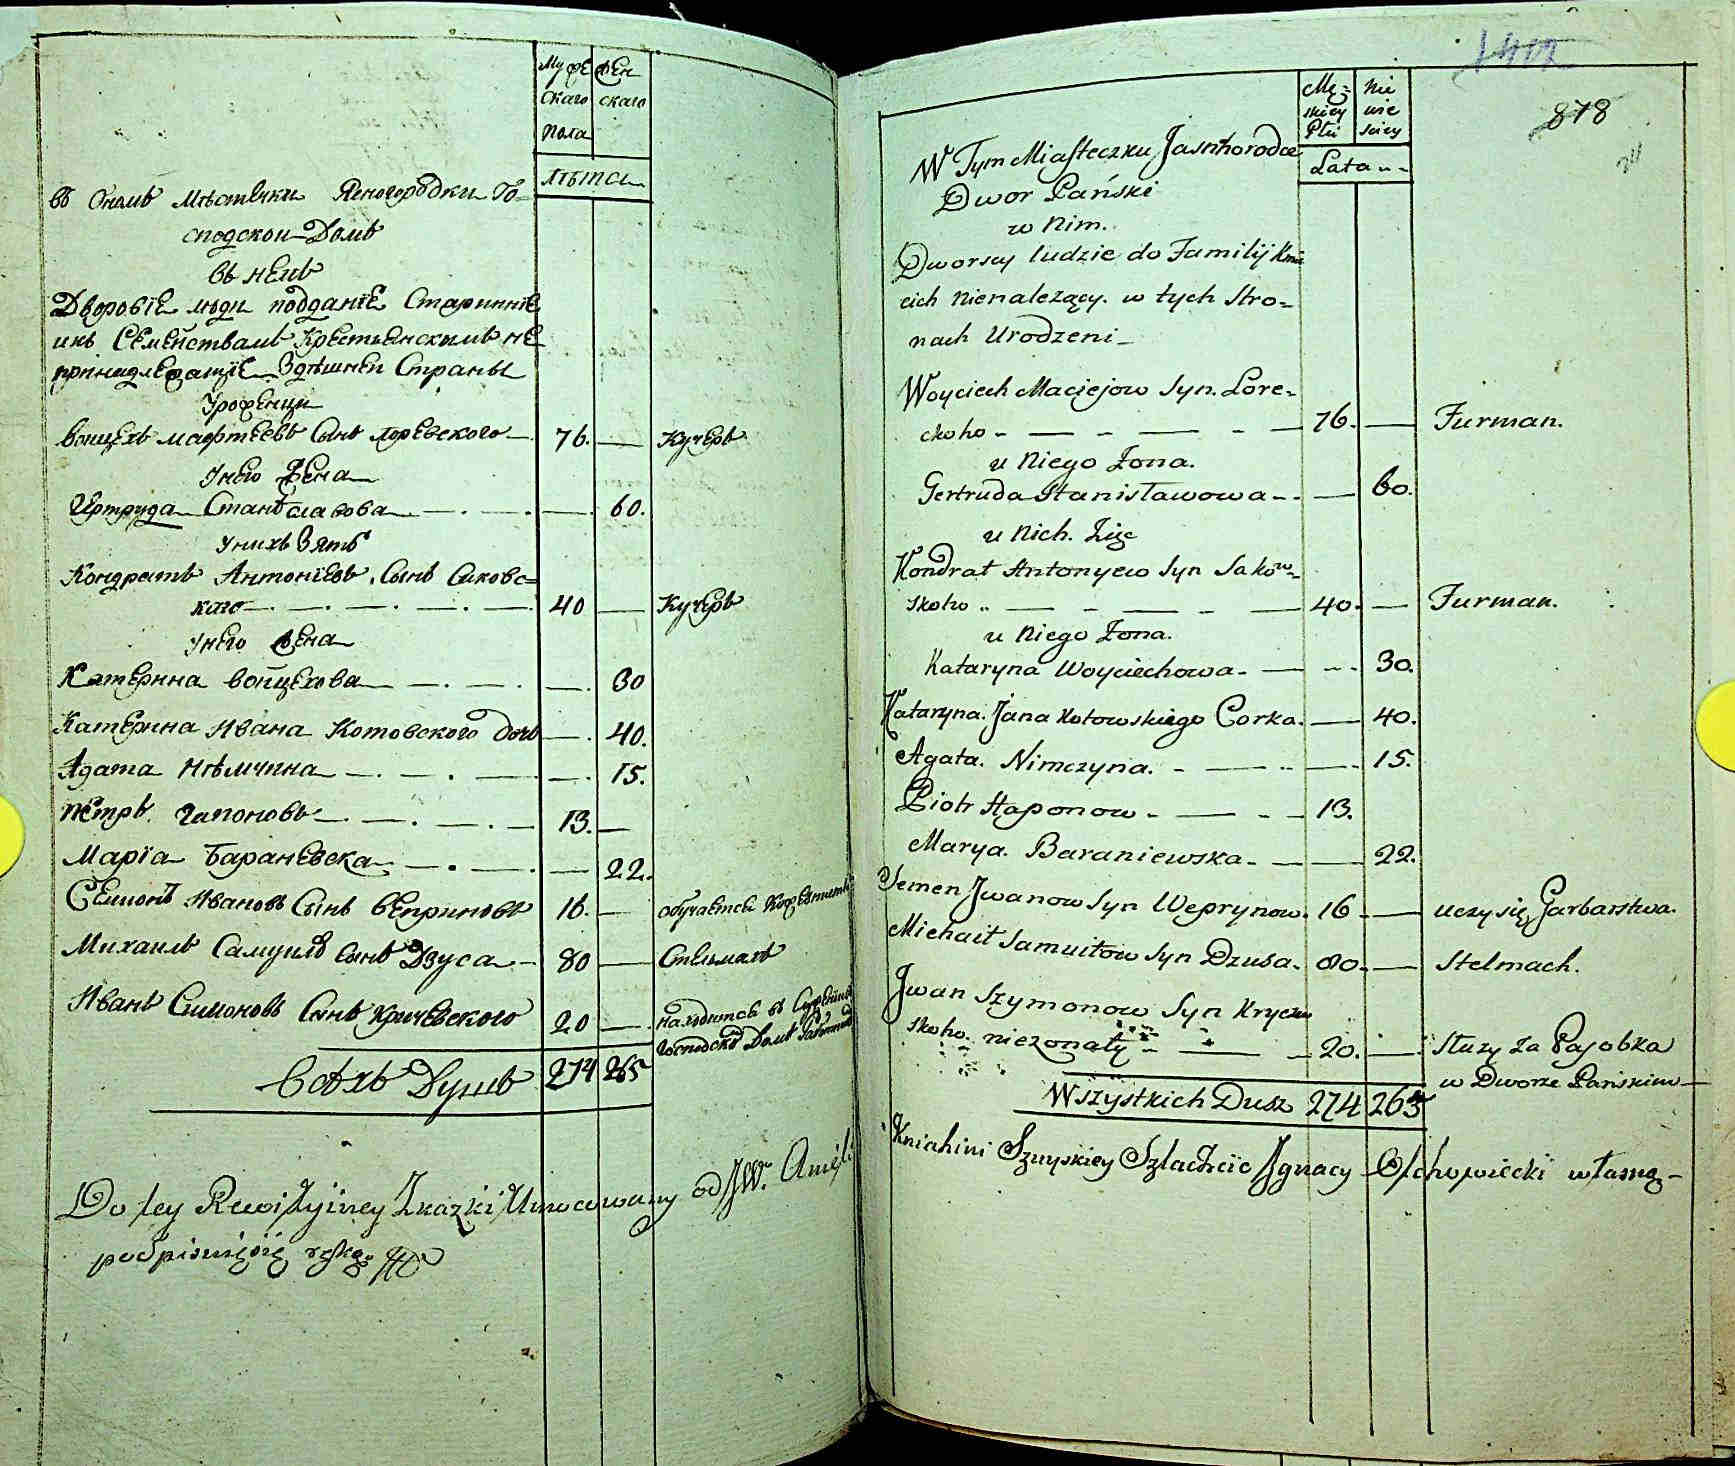 Муже
скаго
пола
жен
скаго
лѣта
въ Ономъ Мѣстечки Ясногородки Го=
сподскои Домъ
въ немъ
Дворовіе люди подданіе Старинніе
инъ Семействамъ Крестьянскимъ не
принадлежащіе Здѣшнеи Страны
Уроженци
Воицехъ Мафтеевъ Сынъ Лоревского 76. Кучеръ
Унего Жена
Гертруда Станѣславова 60.
Унихъ Зять
Кондратъ Антоніевъ Сынъ Саковс=
кого 40 Кучеръ
Унего жена
Катерина Воицехова 30
Катерина Ивана Котовского Дочь 40.
Агата Нѣмчина 15.
Петръ Гапоновъ 13.
Маріа Бараневска 22.
Семионъ Ивановъ Сынъ Веприновъ 16. обучается
Михаилъ Самуилъ Сынъ Дзуса 80 Стельмахъ
Иванъ Симоновъ Сынъ Кричевского 20 находится въ
Господскѣ Домѣ
Всѣхъ Душъ 274 265
Do tey Rewizyiney Skazki Umocowany od JW. Anieli
podpisuię się ręką
878
Mę=
skiey
Płci
Nie
wie
sciey
Lata
W Tym Miasteczku Jasnhorodce
Dwor Pański
w nim.
Dworscy ludzie do Familij Kmie
cich nienalezący. w tych Stro=
nach Urodzeni
Woyciech Maciejow Syn. Lore=
skoho 76. Furman.
u Niego Zona.
Gertruda Stanisławowa 60.
u Nich. Zięc
Kondrat Antonyew Syn Sakow=
skoho 40. Furman.
u Niego Zona.
Kataryna Woyciechowa 30.
Kataryna. Jana Kotowskiego Corka. 40.
Agata. Nimczyna. 15.
Piotr Haponow 13.
Marya. Baraniewska 22.
Semen Jwanow Syn Weprynow. 16 uczy się Garbarstwa.
Michaił Samuiłow Syn Dzusa. 80. Stelmach.
Jwan Szymonow Syn Krycze
skoho. niezonaty 20. Słuzy za Parobka
w Dworze Pańskim
Wszystkich Dusz 274 265
Kniahini Szuyskiey Szlachcic Jgnacy Olchowiecki własną